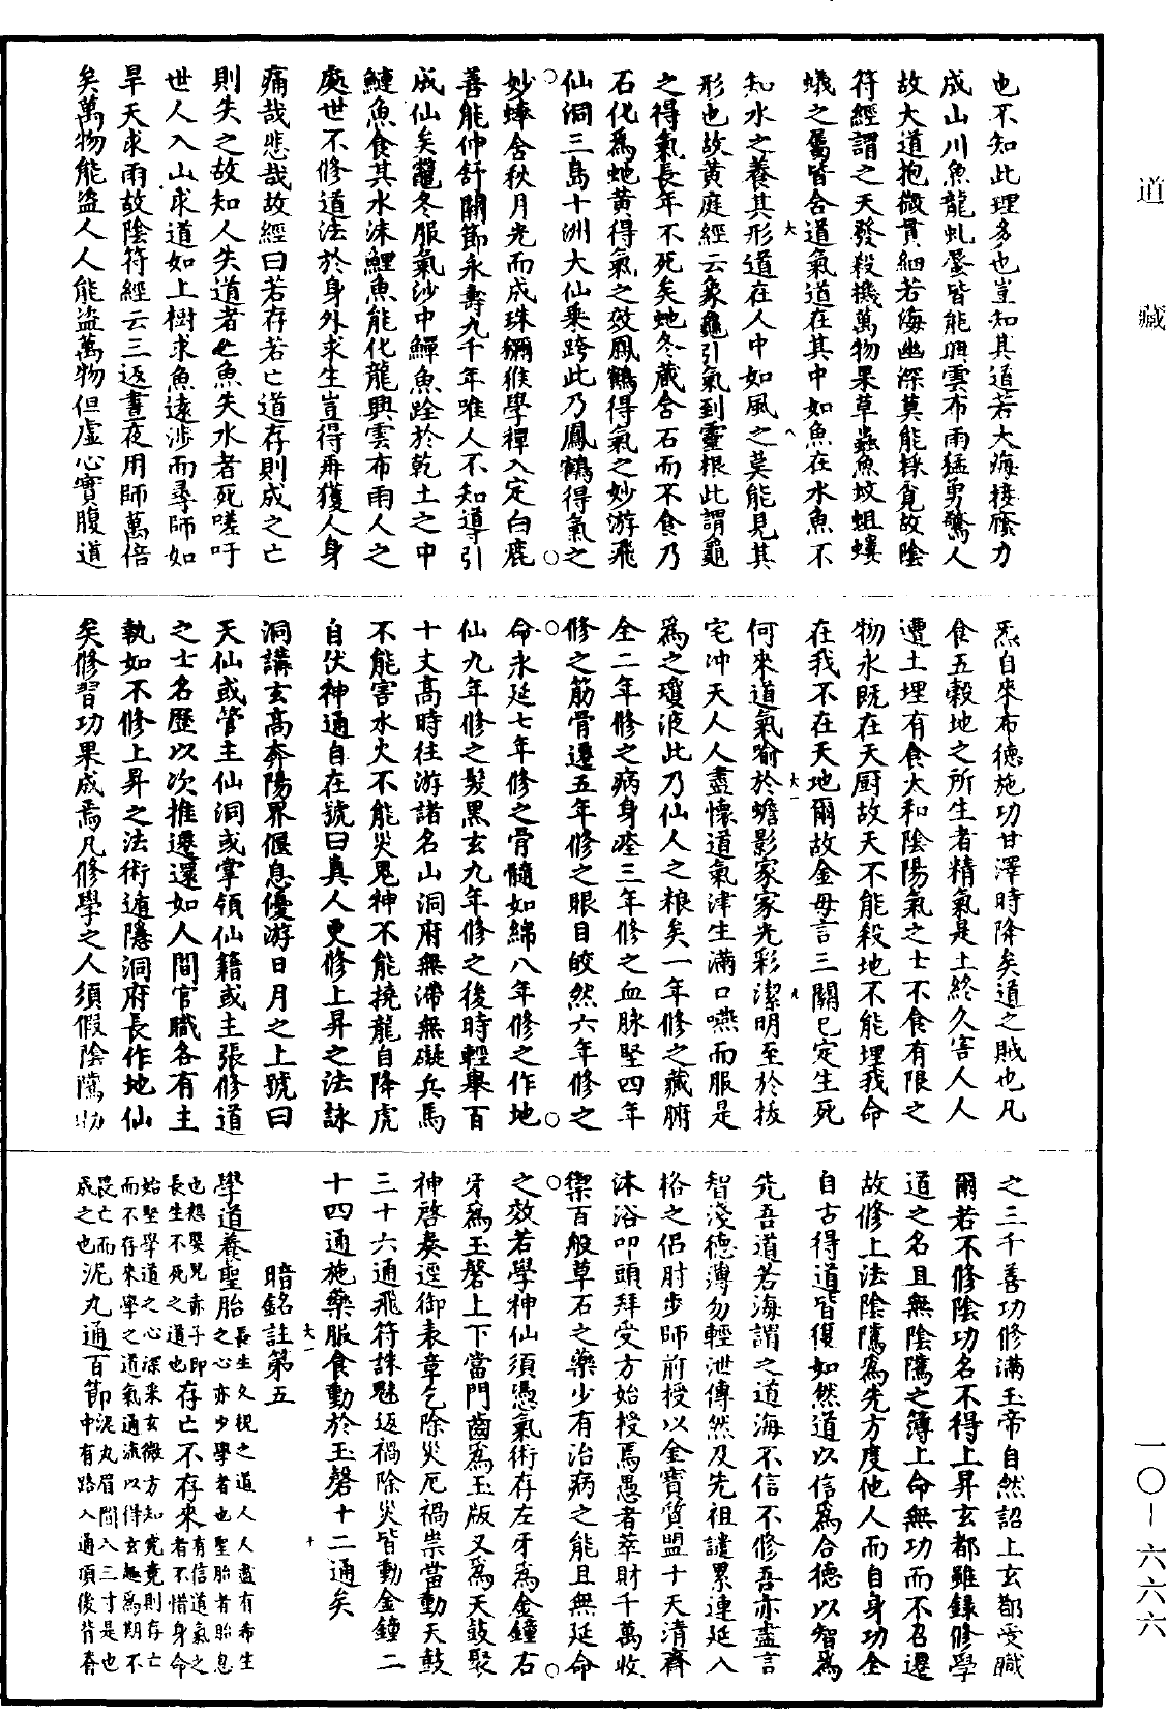 道藏
也不知此理多也豈知其道若大海接癃力
成山川魚龍虬蜃皆能興雲布雨猛勇驚人
故大道抱微貫細若海幽深莫能採覓故陰
符經謂之天發殺機萬物果草蟲魚蚊蛆螻
蟻之屬皆含道氣道在其中如魚在水魚不
知水之養其形道在人中如風之莫能見其
形也故黃庭經云象龜引氣到靈根此謂龜
之得氣長年不死矣虵冬藏含石而不食乃
石化為虵黃得氣之效鳳鶴得氣之妙游飛
仙洞三島十洲大仙乘跨此乃鳳鶴得氣之
妙蜯含秋月光而成珠獼猴學禪入定白鹿
善能伸舒關節永壽九千年唯人不知導引
成仙矣鼉冬服氣沙中鱓魚跧於乾土之中
鰱魚食其水沫鯉魚能化龍興雲布雨人之
處世不修道法於身外求生豈得再獲人身
痛哉悲哉故經曰若存若亡道存則成之亡
則失之故知人失道者亡魚失水者死嗟吁
世人入山求道如上樹求魚遠涉而尋師如
旱天求雨故陰符經云三返晝夜用師萬倍
矣萬物能盜人人能盜萬物但虛心實腹道
炁自來布德施功甘澤時降矣道之賊也凡
食五穀地之所生者精氣是上終久害人人
遭土埋有食太和陰陽氣之士不食有限之
物永既在天厨故天不能殺地不能埋我命
在我不在天地爾故金母言三關已定生死
何來道氣喻於蟾影家家光彩潔明至於拔
宅沖天人人盡懷道氣津生滿口嚥而服是
為之瓊液此乃仙人之粮矣一年修之藏腑
全二年修之病身痊三年修之血脉堅四年
修之筋骨還五年修之眼目皎然六年修之
命永延七年修之骨髓如綿八年修之作地
仙九年修之髮黑玄九年修之後時輕舉百
十丈高時往游諸名山洞府無滯無礙兵馬
不能害水火不能災鬼神不能撓龍自降虎
自伏神通自在號曰真人更修上昇之法詠
洞講玄高奔陽界偃息優游日月之上號曰
天仙或管主仙洞或掌領仙籍或主張修道
之士名歷以次推遷還如人間官職各有主
執如不修上昇之法術遁隱洞府長作地仙
矣修習功果成焉凡修學之人須假陰隲助
之三千善功修滿玉帝自然詔上玄都受職
爾若不修陰功名不得上昇玄都雖錄修學
道之名且無陰隲之簿上命無功而不召遷
故修上法陰隲為先方度他人而自身功全
自古得道皆復如然道以信為合德以智為
先吾道若海謂之道海不信不修吾亦盡言
智淺德薄勿輕泄傳然及先祖譴累連延入
格之侶肘步師前授以金寶質盟十天清齊
沐浴叩頭拜受方始授焉愚者萃財千萬收
禦百般草石之藥少有治病之能且無延命
之效若學神仙須憑氣術存左牙為金鐘右
牙為玉磬上下當門齒為玉版又為天鼓聚
神啓奏逕御表章乞除災厄禍祟當動天鼓
三十六通飛符誅魅返禍除災皆動金鐘二
十四通施藥服食動於玉磬十二通矣
暗銘註第五
學道養聖胎長生久視之道人人盡有希生之心亦少學者也聖胎者胎息也想嬰兒赤子即存亡不存來有信道氣之者不惜身命長生不死之道也
始堅學道之心深采玄微方知究竟則存亡而不存來寧之道氣通流以得玄趣為期不畏亡而成之也泥丸通百節泥丸眉間入三寸是也中有路入通項後背脊
一〇-六六六